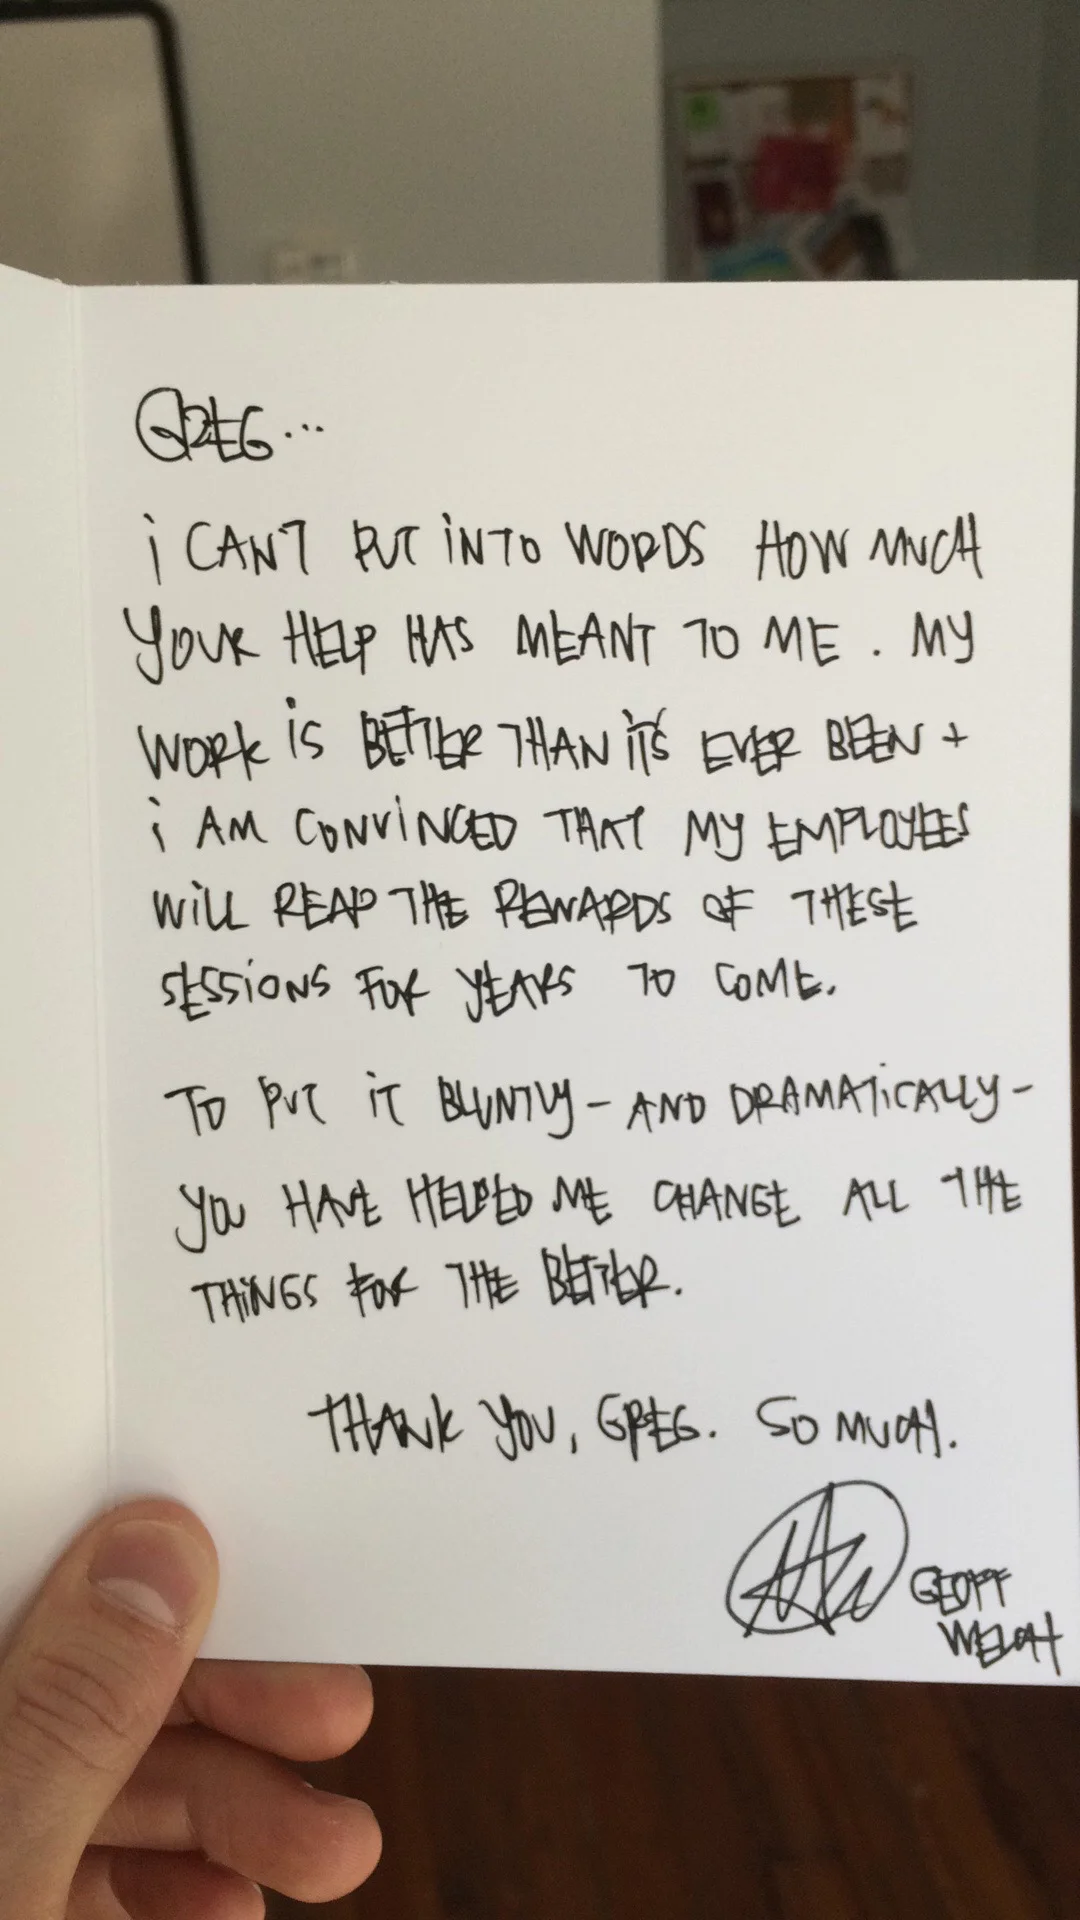 GREG...
i CAN'T PUT iNTO WORDS HOW MUCH
YOUR HELP HAS MEANT TO ME. MY
WORK iS BETTER THAN iT'S EVER BEEN +
i AM CONViNCED THAT MY EMPLOYEES
WiLL REAP THE REWARDS OF THESE
SESSiONS FOR YEARS TO COME.
TO PUT iT BLUNTLY - AND DRAMATiCALLY -
YOU HAVE HELPED ME CHANGE ALL THE
THiNGS FOR THE BETTER.
THANK YOU, GREG. SO MUCH.
GEOFF
WELCH